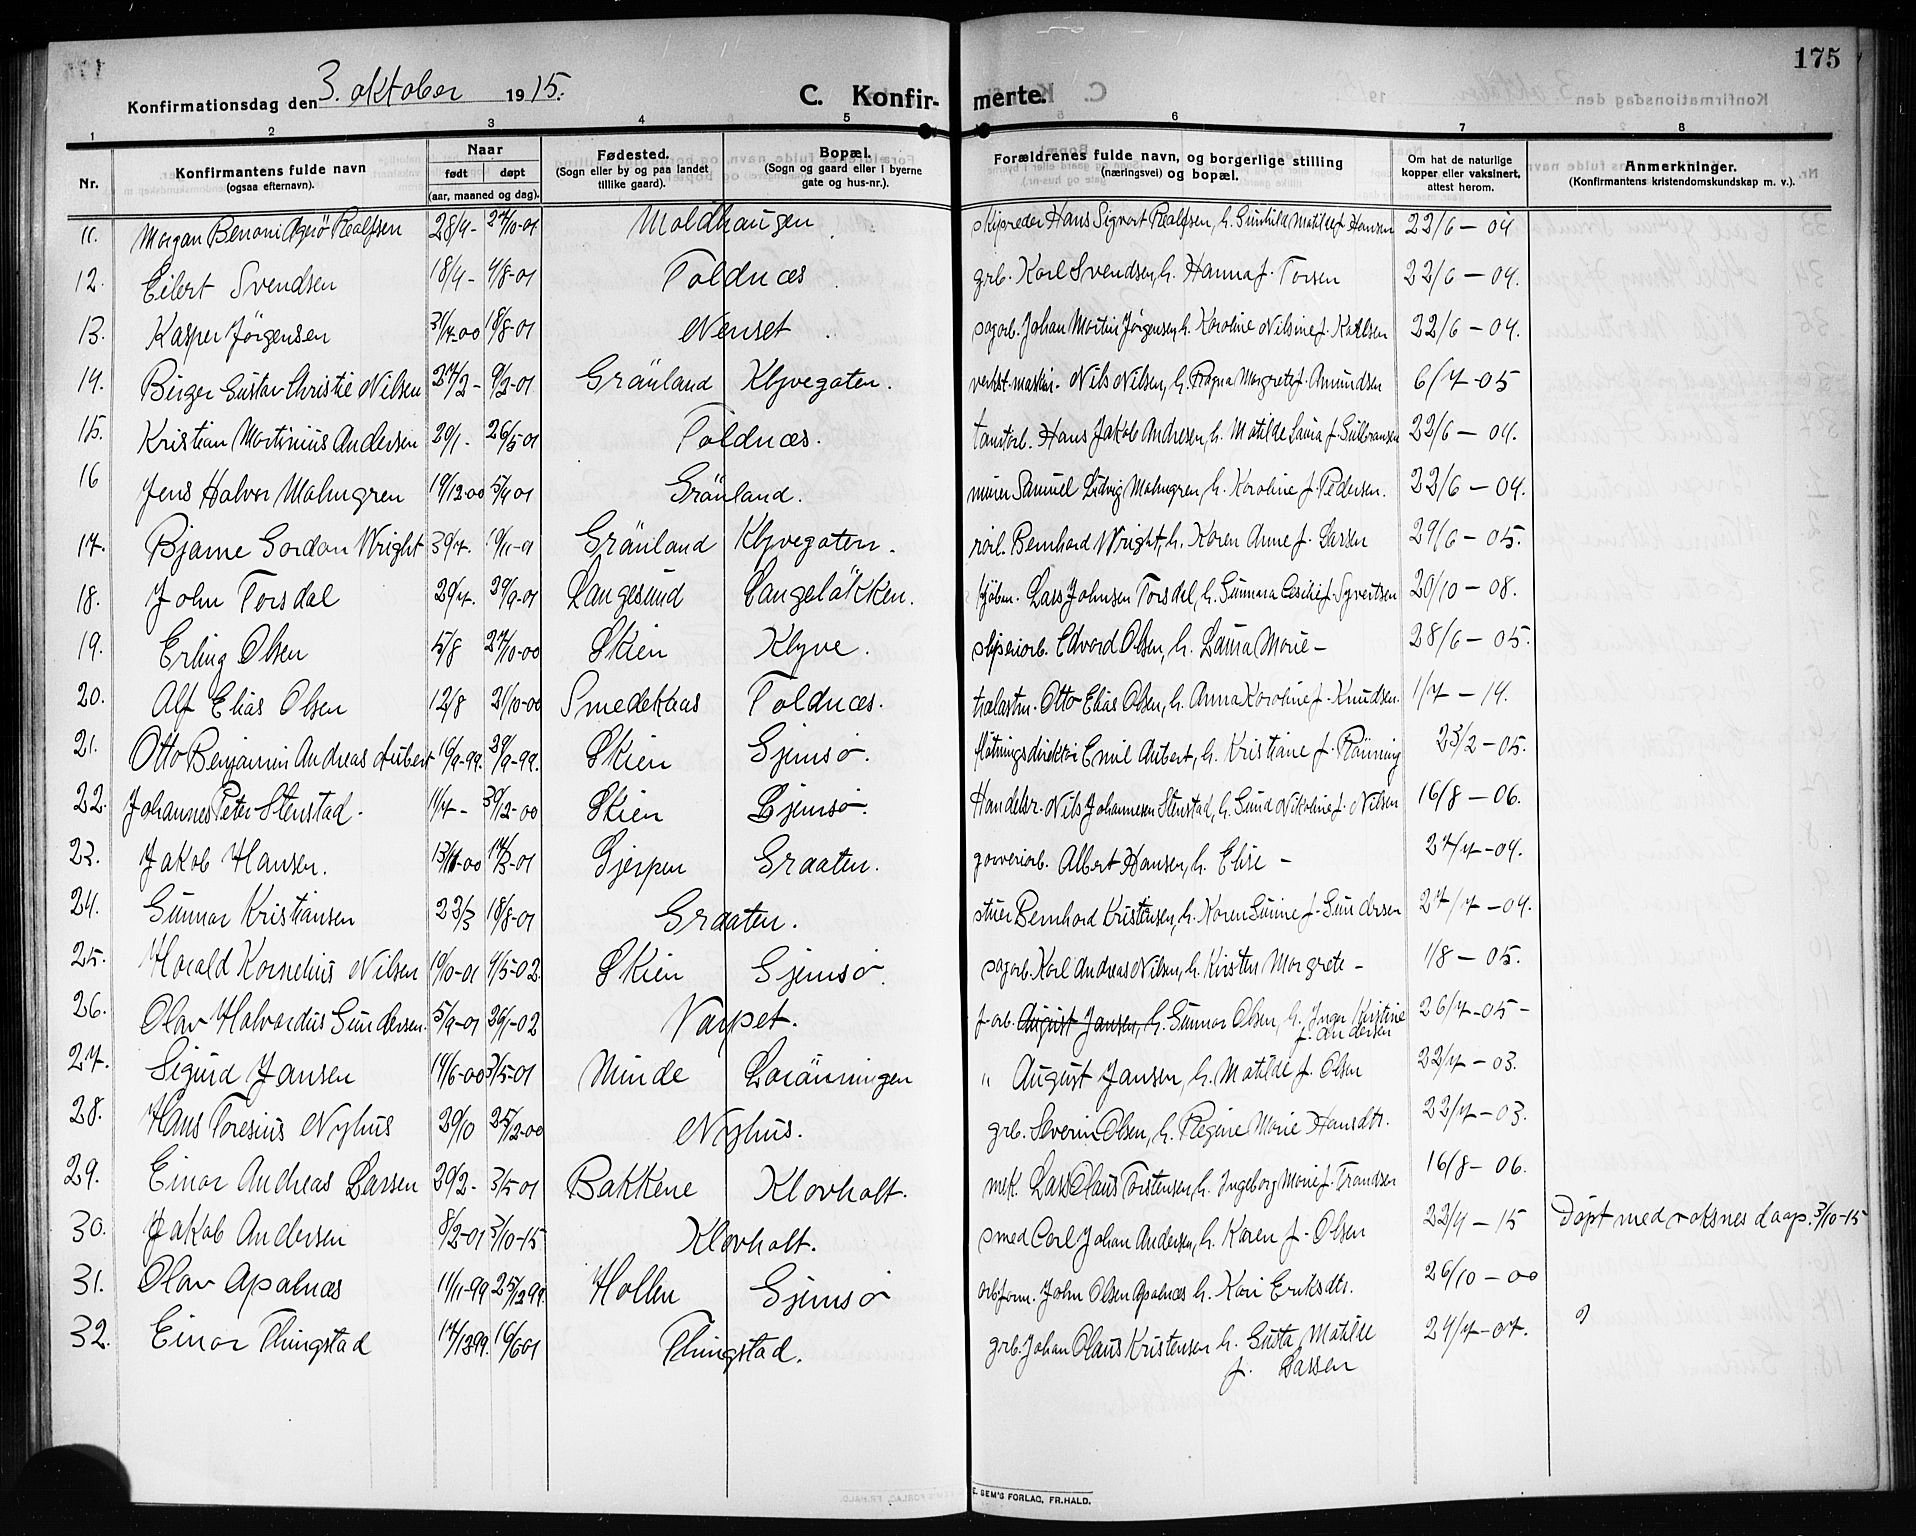 175
Konfirmationsdag den 3. oktober 1915.
C. Konfir-merte.
1 2 3 4 5 6 7 8
Nr. Konfirmantens fulde navn (ogsaa efternavn). Naar født døpt (aar, maaned og dag). Fødested. (Sogn eller by og paa landet tillike gaard). Bopæl. (Sogn og gaard eller i byerne gate og hus-nr.). Forældrenes fulde navn, og borgerlige stilling (næringsvei) og bopæl. Om hat de naturlige kopper eller vaksinert, attest herom. Anmerkninger. (Konfirmantens kristendomskundskap m. v.).
11. Morgan Benoni Agerø Realfsen 28/4- 27/10-01 Moldhaugen skipsreder Hans Sigvart Realfsen, h. Gunhilda Matilde f. Hansen 22/6-04
12. Eilert Svendsen 18/4- 4/8-01 Toldnæs grb. Karl Svendsen, h. Hanna f. Torsen 22/6-04.
13. Kasper Jörgensen 31/7-00 18/8-01 Nenset sagarb. Johan Martin Jørgensen, h. Karoline Nilsine f. Karlsen 22/6-04.
14. Birger Gustav Christie Nilsen 27/2- 9/2-01 Grönland Klyvegaten. verkst.maskin. Nils Nilsen, h. Ragna Margrete f. Amundsen 6/7-05
15. Kristian Martinius Andersen 20/1- 26/5-01 Toldnæs. tomtarb. Hans Jakob Andresen, h. Matilde Laura f. Gulbransen 22/6-04.
16 Jens Halvor Malmgren 19/12-00 5/4-01 Grönland. murer Samuel Ludvig Malmgren, h. Karoline f. Pedersen. 22/6-04.
17. Bjarne Gordon Wright 30/7. 10/11-01 Grönland Klyvegaten. rörl. Bernhard Wright, h. Karen Anne f. Larsen 29/6-05.
18. John Torsdal 20/4. 29/9-01 Langesund Langeläkken. kjöbm. Lars Johnsen Torsdal, h. Gunnara Cecilie f. Syvertsen 20/10-08.
19. Erling Olsen 5/8 27/10-00 Skien Klyve. sliperiarb. Edvard Olsen, h. Laura Marie - 28/6-05.
20. Alf Elias Olsen 12/8 21/10-00 Smedekaas Toldnæs. trælasttm. Otto Elias Olsen, h. Anna Karoline f. Knudsen. 1/7-14.
21. Otto Benjamin Andreas Aubert 16/9-99. 29/9-99. Skien Gjemsø. fløtningsdirektör Emil Aubert, h. Kristiane f. Rönning 23/2-05.
22. Johannes Peter Stenstad. 11/7- 30/12-00 Skien Gjemsø. Handelsr. Nils Johannesen Stenstad, h. Gund Nikoline f. Nilsen 16/8-06.
23. Jakob Hansen. 13/11-00 17/3-01 Gjerpen Graaten. garveriarb. Albert Hansen, h. Elise - 27/7-04.
24. Gunnar Kristiansen 22/3 18/8-01 Graaten. stuer Bernhard Kristensen, h. Karen Gurine f. Gundersen 27/7-04.
25. Harald Kornelius Nilsen 19/10-01 4/5-02. Skien Gjemsø. sagarb. Karl Andreas Nilsen, h. Kirsten Margrete - 1/8-05.
26. Olav Halvardus Gundersen. 5/9-01 26/1-02 Varpet. f.arb. August Jansen, h. Gunnar Olsen, h. Inger Kristine f. Andersen 26/7-05-
27. Sigurd Jansen 14/6-00 3/5-01 Minde Lorönningen " August Jansen, h. Matilde f. Olsen 22/7-03.
28. Hans Toresius Nyhus 20/10 25/12-00 Nyhus. grb. Severin Olsen, h. Regine Marie Hansdtr. 22/7-03.
29. Einar Andreas Larsen 20/2- 3/5-01 Bakkene Klovholt. mek. Lars Olaus Torstensen, h. Ingeborg Marie f. Frandsen 16/8-06.
30. Jakob Andersen 8/2-01 3/10-15 Klovholt. smed Carl Johan Andersen, h. Karen f. Olsen 22/4-15 Døpt med voksnes daap. 3/10-15
31. Olav Apalnæs 11/11-99 25/12-99 Hollen Gjemsø arb.form. John Olsen Apalnæs h. Kari Eriksdtr. 26/10-00
32. Einar Thingstad 17/12-99. 16/6-01 Thingstad. grb. Johan Olaus Kristensen h. Gusta Matilde f. Larsen 24/7-07.
E. SEM'S FORLAG, FR.HALD.